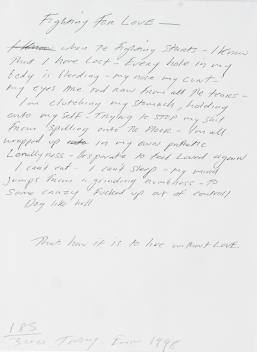 Fighting For Love —
when The Fighting Starts - I Know
That I have Lost - Every hole in my
body is bleeding - my nose my cunt -
my eyes are red raw from all the tears -
I am clutching my stomach, holding
onto my self - Trying to stop my shit
from spilling onto the floor - I'm all
wrapped up in my own pathetic
Lonelyness - Desparate to feel Loved again
I can't eat - I can't sleep - my mind
jumps from a grinding numbness - to
some crazy Fucked up out of control
Dog like hell
Thats how it is to live without LOVE.
1 85
Tracey Emin 1998